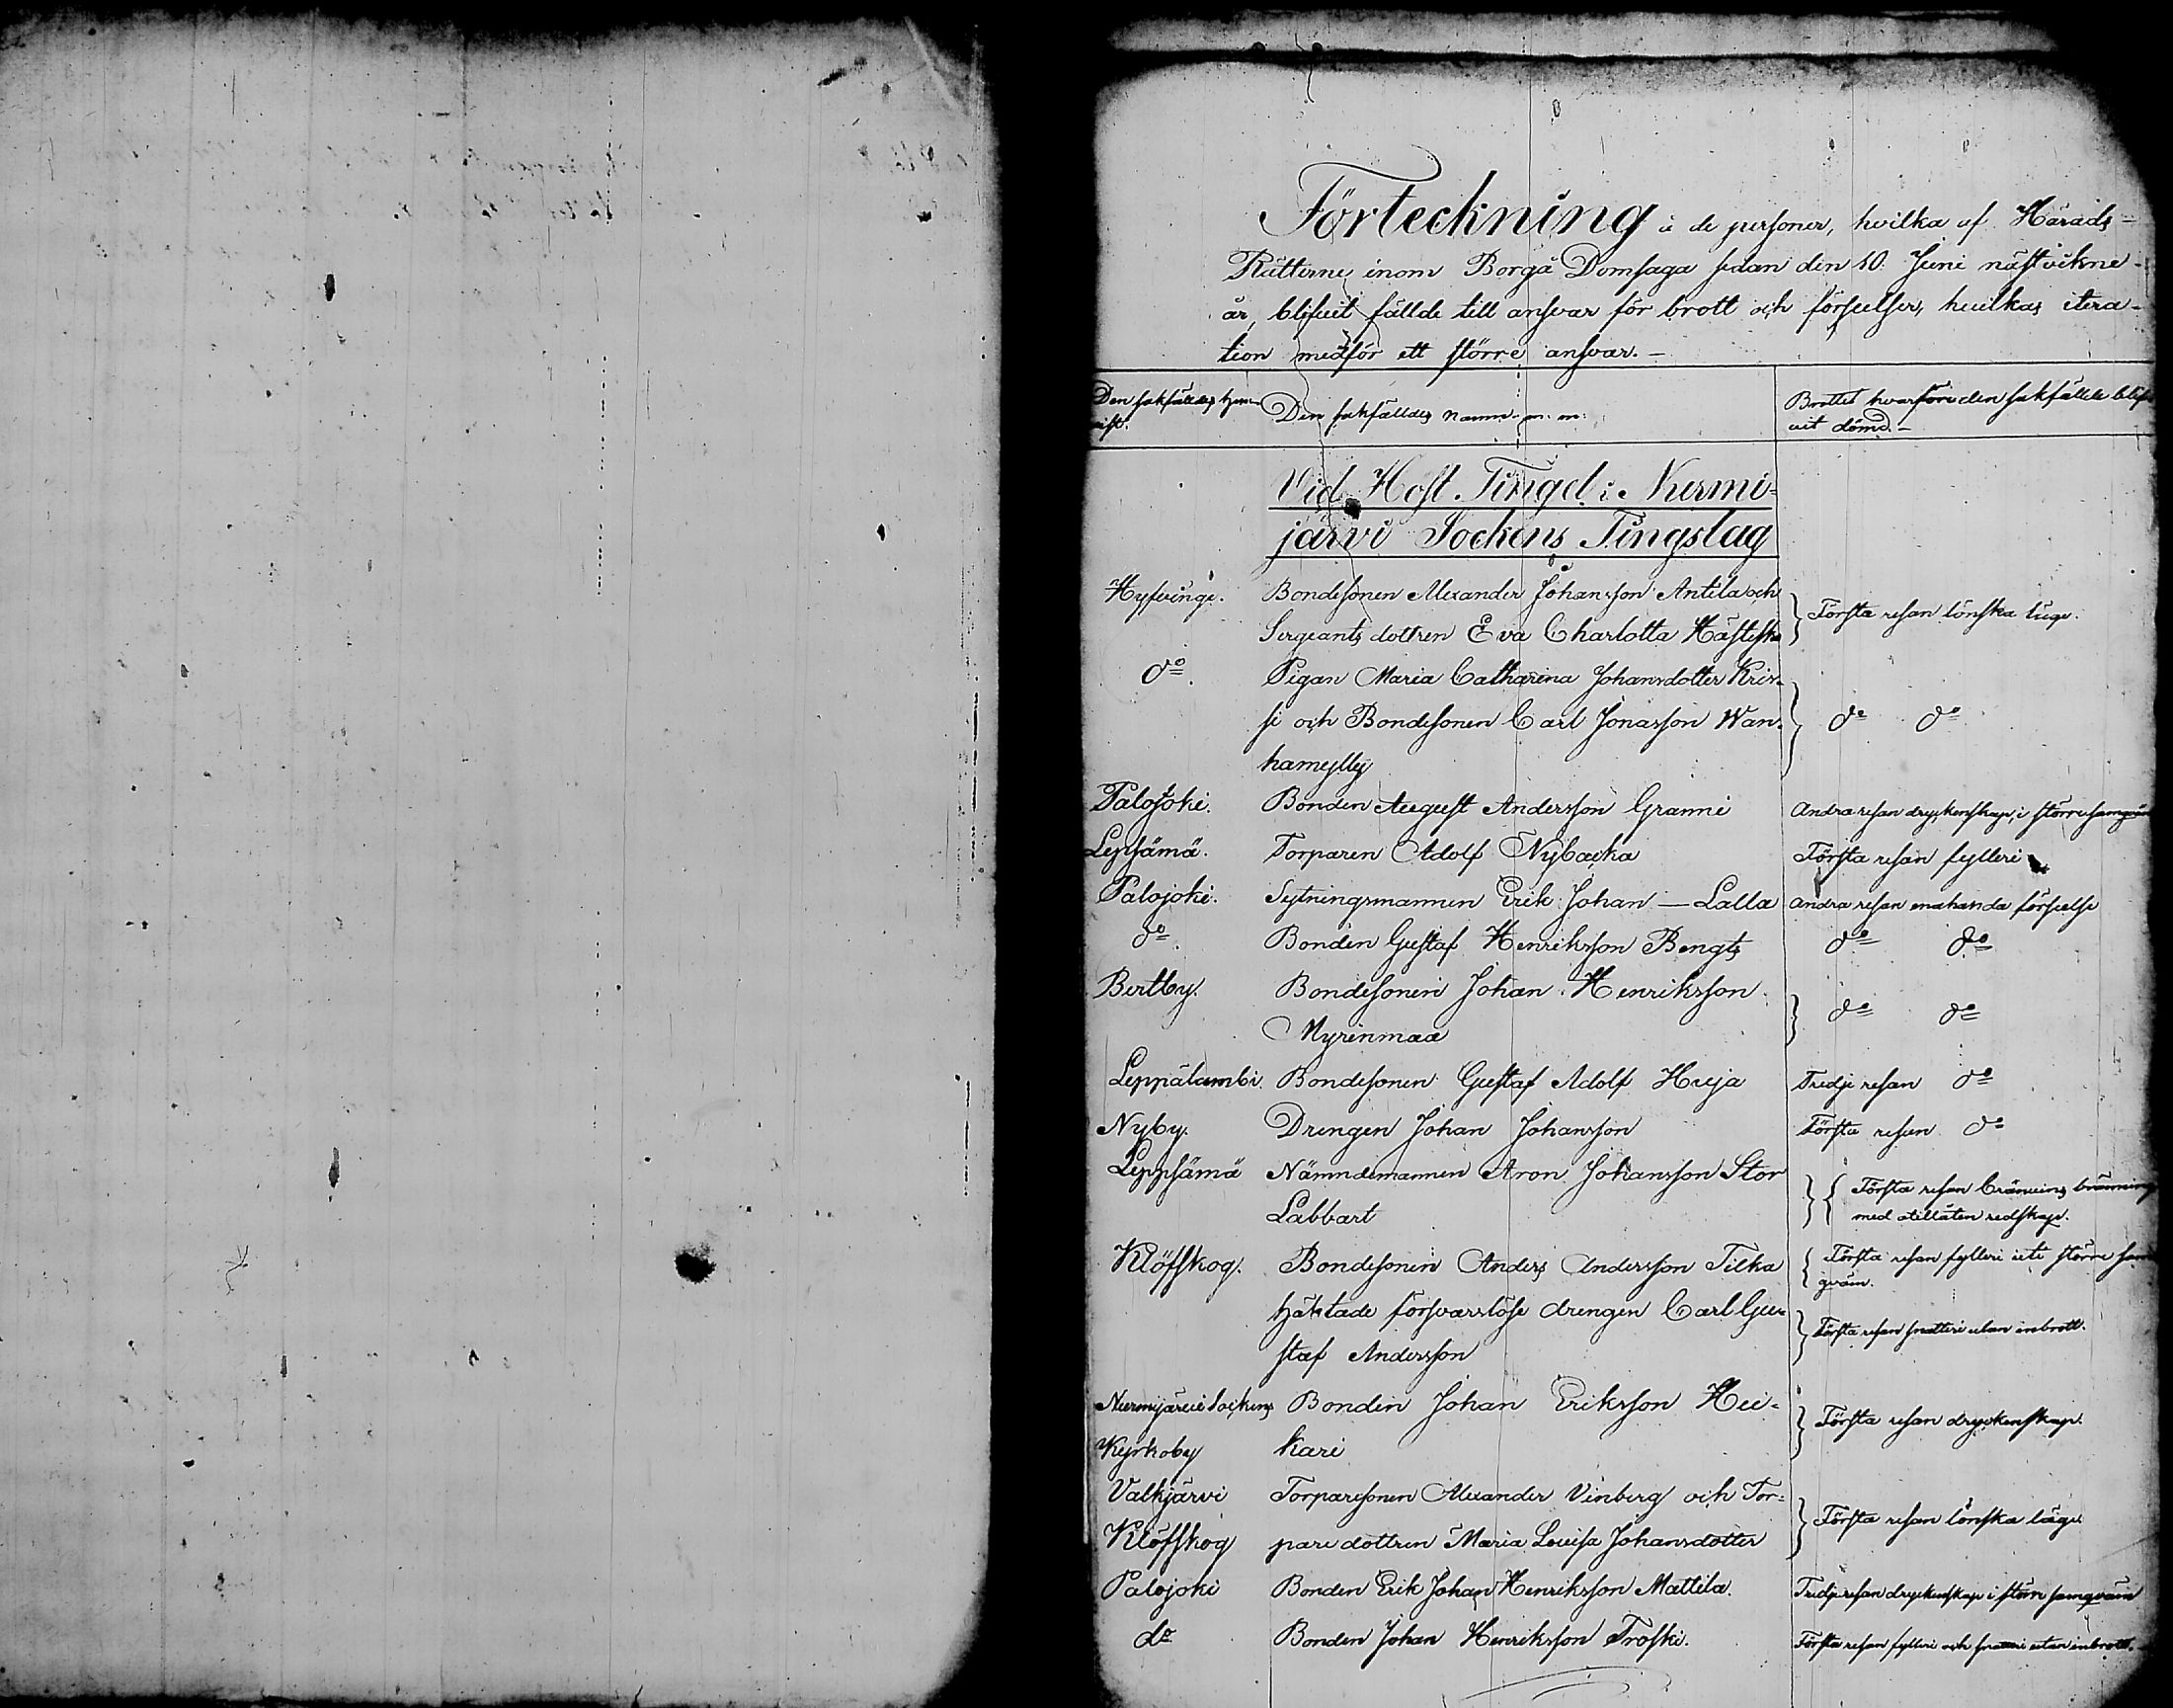 Förteckning å de personer, hvilka af Härads-
Rätterne inom Borgå Domsaga sedan den 10 Juni nästvikne
år, blifvit fällde till ansvar för brott och förseelser, hvilkas itera-
tion medför ett större ansvar. —
Den sakfälldes hem-
vist.
Den sakfälldes namn m: m:
Brottet hvarföre den sakfällde blif-
vit dömd. —
Vid Höst Tinget i Nurmi-
järvi Sockens Tingslag
Hyfvinge. Bondesonen Alexander Johansson Antila och
Sergeants dottren Eva Charlotta Hästesko } Första resan lönska läge.
do. Pigan Maria Catharina Johansdotter Kris-
si och Bondesonen Carl Jonasson Wan- } do do
hamylly
Palojoki. Bonden August Andersson Granni Andra resan dryckenskap, i större samqväm
Lepsämä. Torparen Adolf Nybacka Första resan fylleri
Palojoki. Sytningsmannen Erik Johan — Lalla Andra resan enahanda förseelse
do. Bonden Gustaf Henriksson Bengts do do
Bertby. Bondesonen Johan Henriksson
Myrinmaa } do do
Leppälambi. Bondesonen Gustaf Adolf Huja Tredje resan do
Nyby. Drengen Johan Johansson Första resan do
Leppsämä Nämndemannen Aron Johansson Stor } { Första resan bränvins bränning
Labbart med otillåten redskap.
Klöfskog. Bondesonen Anders Andersson Tilka { Första resan fylleri uti större sam-
qväm.
Häktade försvarslöse drengen Carl Gu- } Första resan snatteri utan inbrott.
staf Andersson
Nurmijärvi Sockens Bonden Johan Eriksson Huu- } Första resan dryckenskap.
Kyrkoby kari
Valkjärvi Torparesonen Alexander Vinberg och Tor- } Första resan lönska läge
Klöfskog paredottren Maria Lovisa Johansdotter
Palojoki Bonden Erik Johan Henriksson Mattila. Tredje resan dryckenskap i större samqväm
do Bonden Johan Henriksson Troski. Första resan fylleri och snatteri utan inbrott.